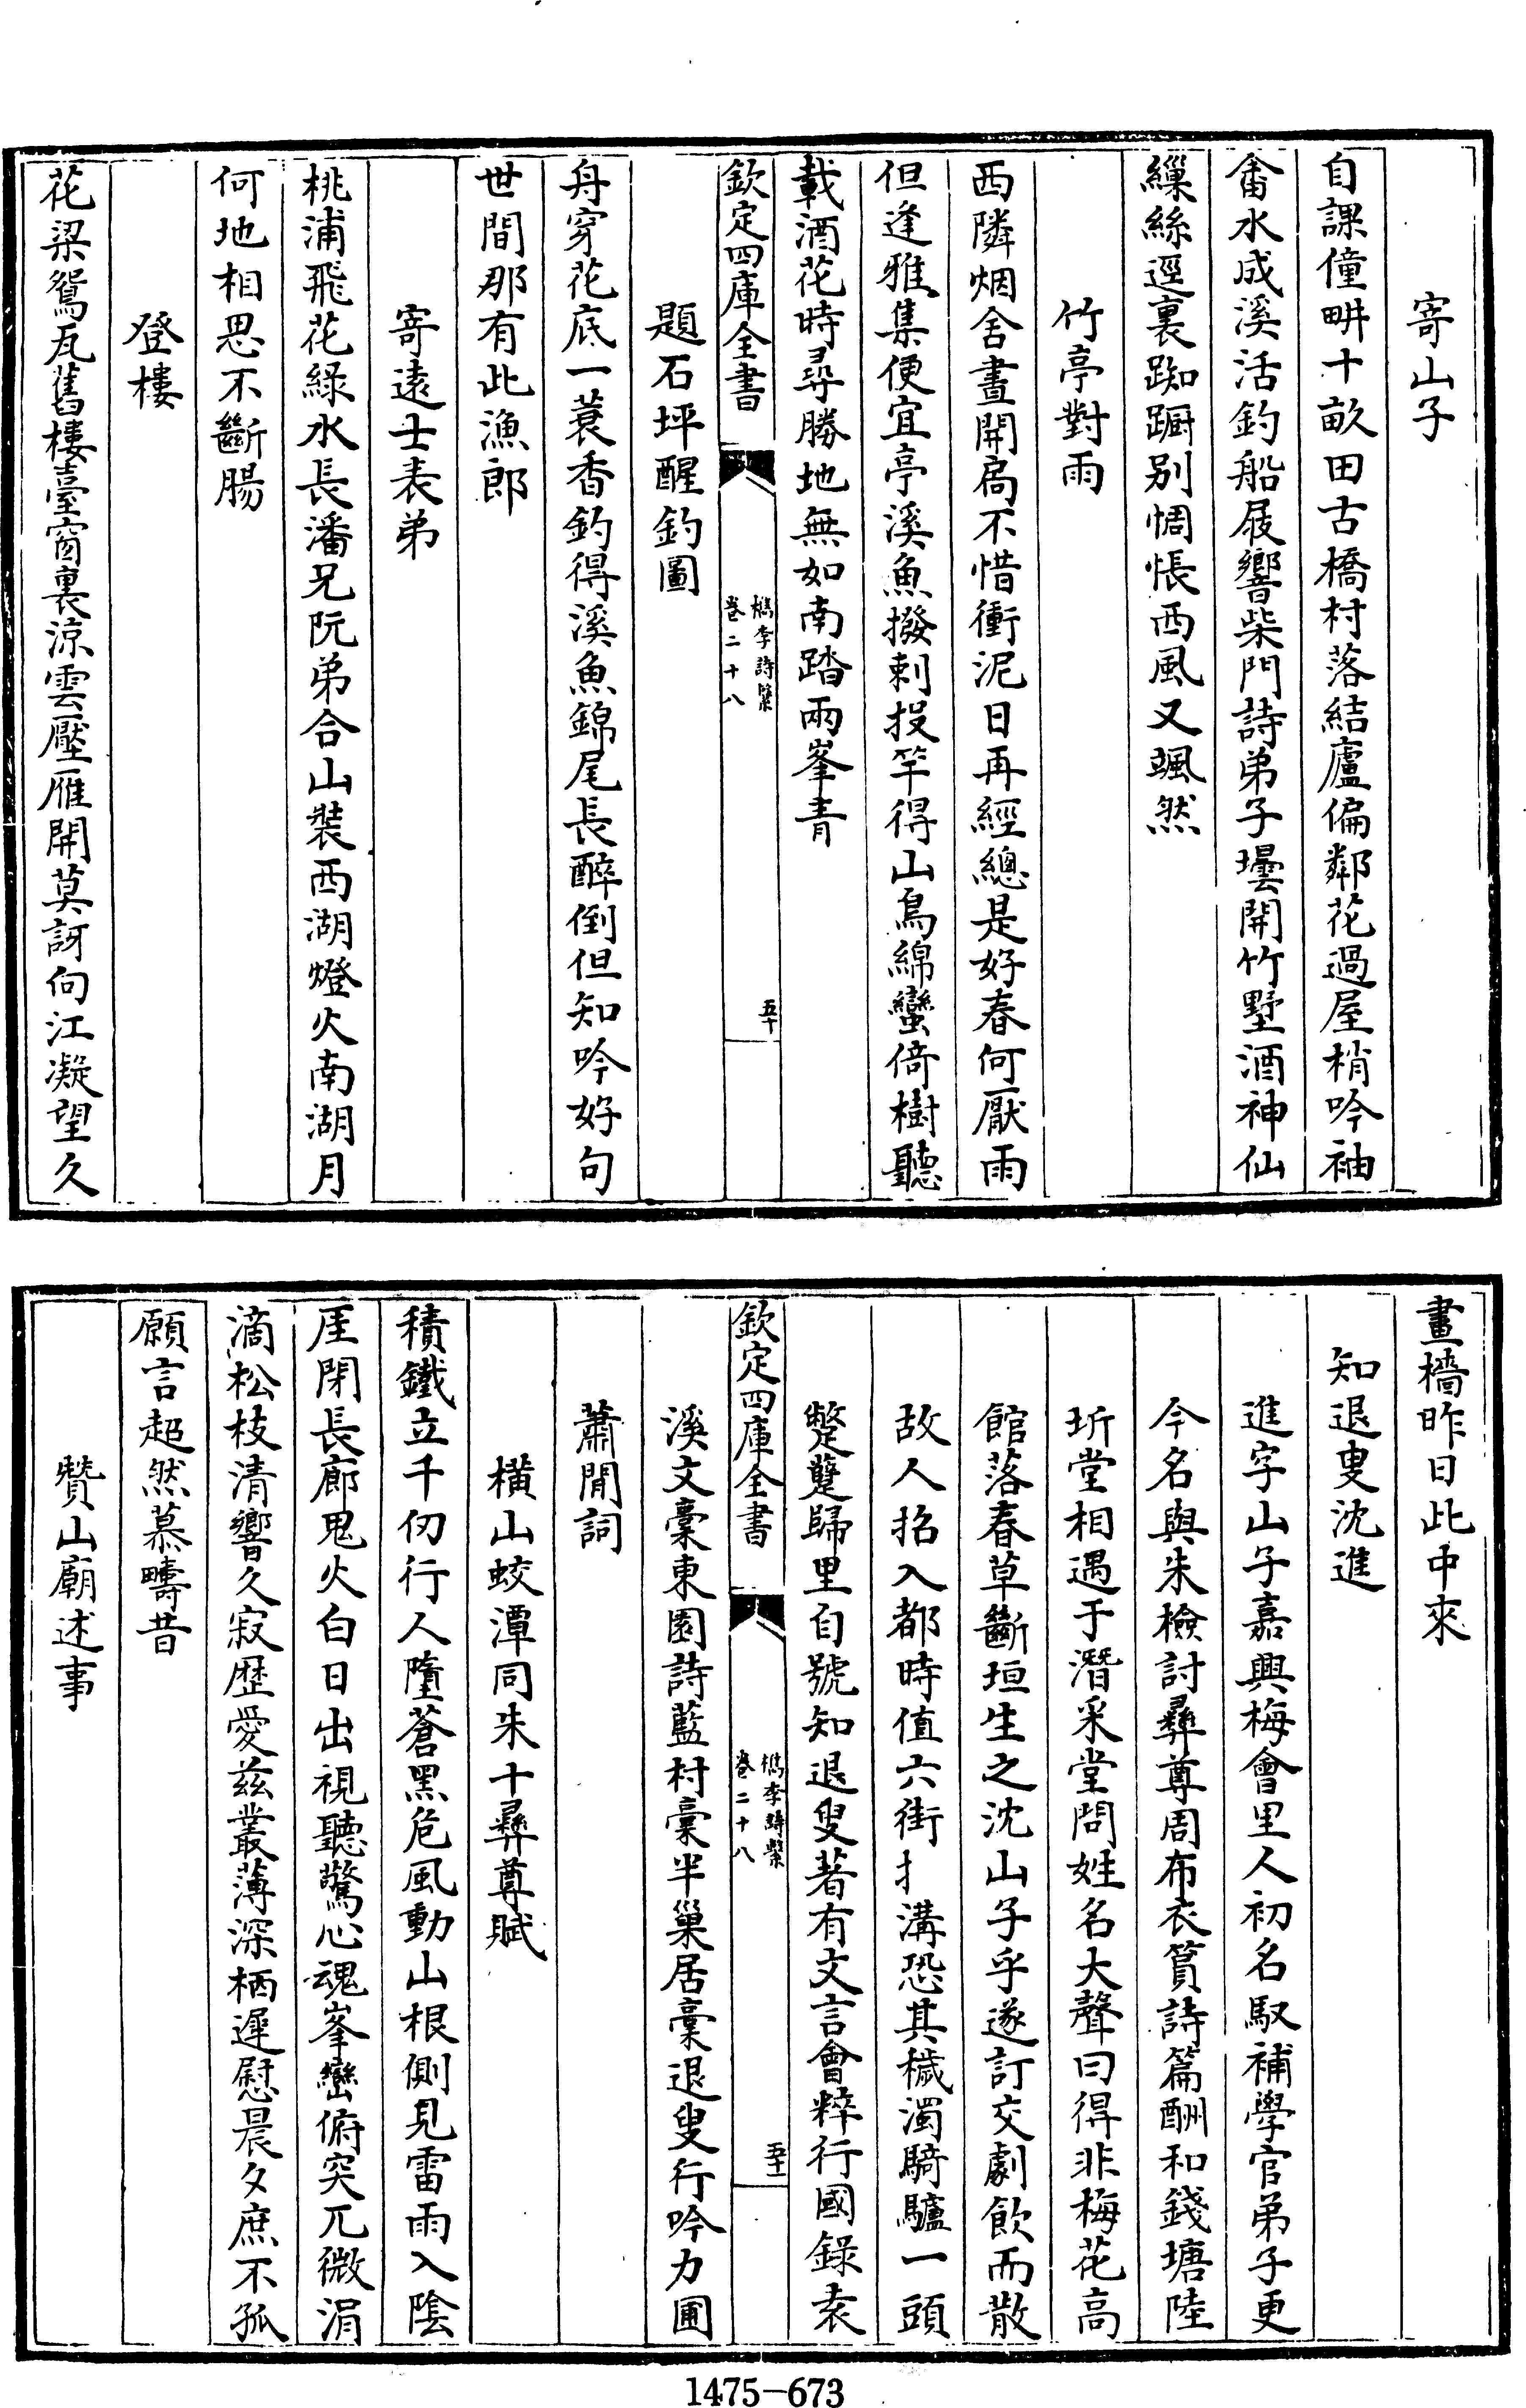 寄山子
自課僮畊十畝田古橋村落結廬偏鄰花過屋梢吟袖
畬水成溪活釣船屐響柴門詩弟子曇開竹墅酒神仙
繅絲逕裏踟蹰别惆悵西風又颯然
竹亭對雨
西隣烟舍晝開扃不惜衝泥日再經總是好春何厭雨
但逢雅集便宜亭溪魚撥剌投竿得山鳥綿蠻倚樹聽
載酒花時尋勝地無如南踏兩峯青
欽定四庫全書
檇李詩繫
卷二十八
五十
題石坪醒釣圖
舟穿花底一蓑香釣得溪魚錦尾長醉倒但知吟好句
世間那有此漁郎
寄遠士表弟
桃浦飛花綠水長潘兄阮弟合山裝西湖燈火南湖月
何地相思不斷腸
登樓
花梁鴛瓦舊樓臺窗裏涼雲壓雁開莫訝向江凝望久
畫檣昨日此中來
知退叟沈進
進字山子嘉興梅會里人初名馭補學官弟子更
今名與朱檢討彝尊周布衣篔詩篇酬和錢塘陸
圻堂相遇于潛采堂問姓名大聲曰得非梅花高
館落春草斷垣生之沈山子乎遂訂交劇飲而散
故人招入都時值六街扌溝恐其穢濁騎驢一頭
蹩躠歸里自號知退叟著有文言會粹行國錄袁
欽定四庫全書
檇李詩繫
卷二十八
五十一
溪文稾東園詩藍村稾半巢居稾退叟行吟力圃
蕭閒詞
橫山蛟潭同朱十彝尊賦
積鐵立千仞行人墮蒼黑危風動山根側見雷雨入陰
厓閉長廊鬼火白日出視聽驚心魂峯巒俯突兀微涓
滴松枝清響久寂歴愛兹叢薄深栖遲慰晨夕庶不孤
願言超然慕疇昔
贊山廟述事
1475-673